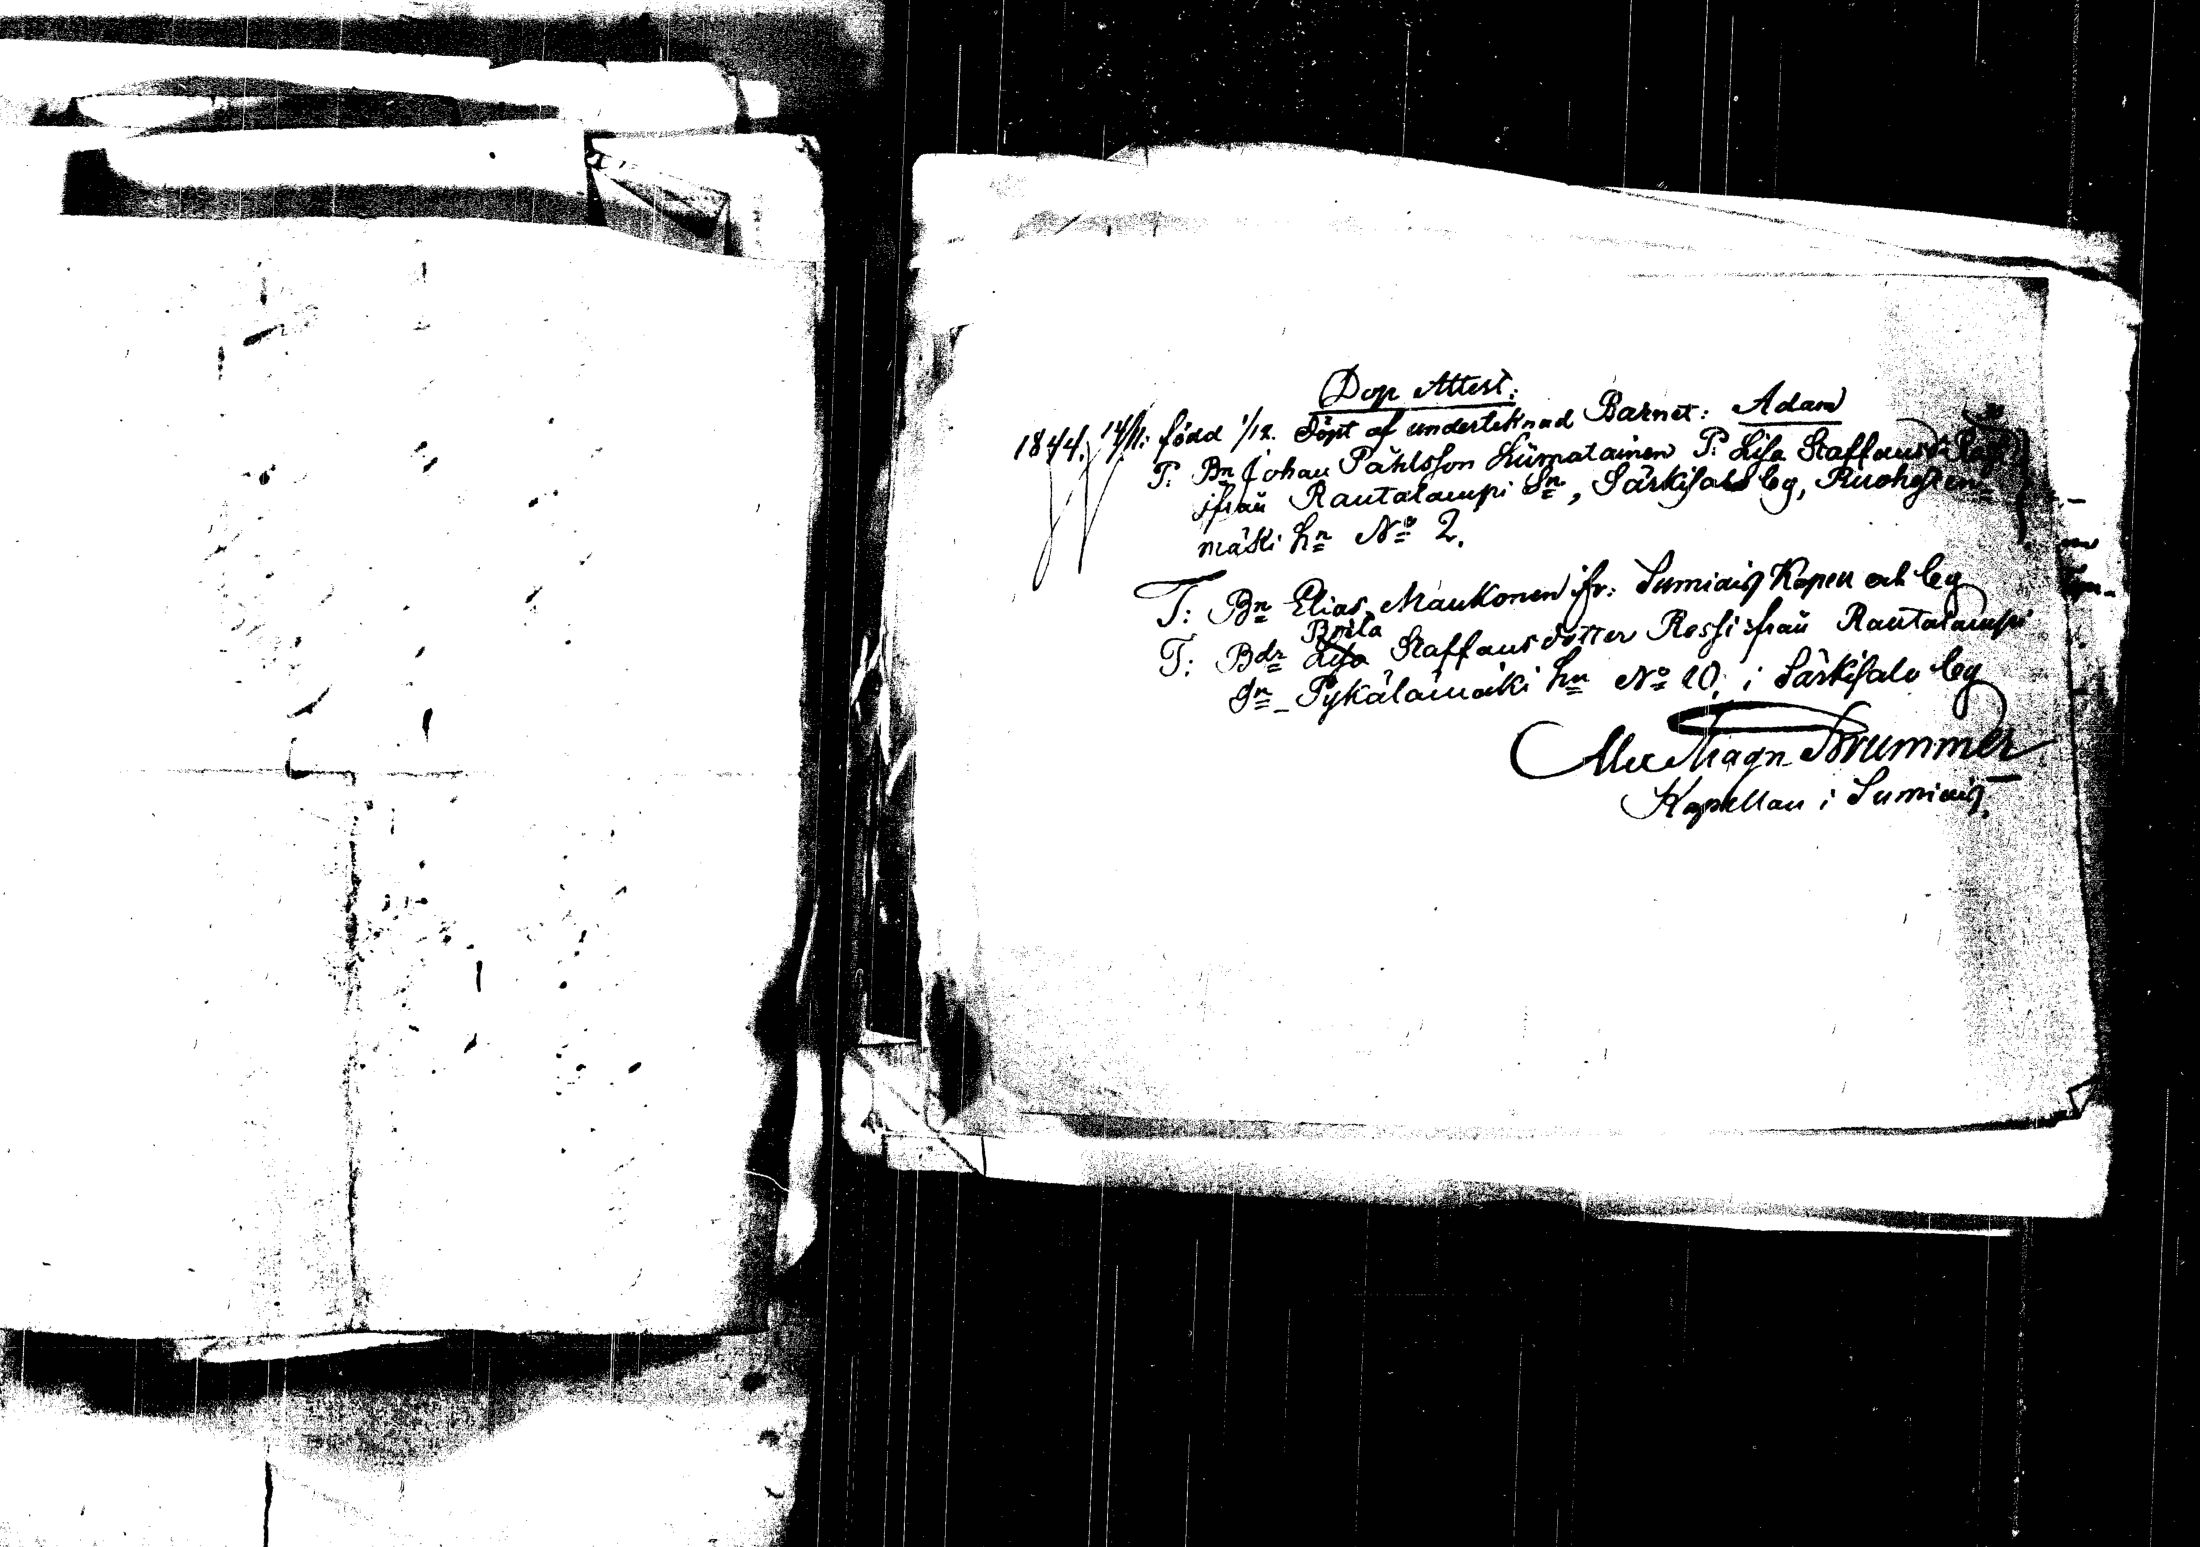 Dop Attest:
1844. född 1/12. Döpt af underteknad Barnet: Adam
P: Bn Johan Påhlsson Liimatainen P: Lisa Staffansd:r
ifrån Rautalampi Sn, Särkisalo by,
mäki hn No 2.
T: Bn Elias Maukonen ifr: Sumiais Kapell och by
Brita
T: Bdr Lisa Staffansdotter Ressi ifrån Rautalampi
Sn Pykälämäki hn No 10, i Särkisalo by
Alex Magn Brummer
Kapellan i Sumiais.